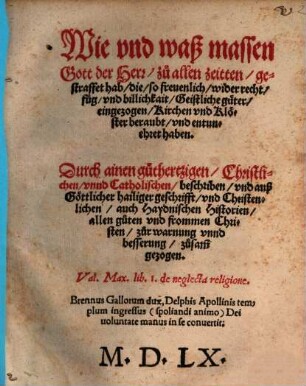 Wie vnd waß massen
Gott der Herr / zů allen zeitten / ge-
straffet hab / die / so freuenlich / wider recht /
fůg / vnd billichkait / Geistliche gůter /
eingezogen / Kirchen vnd Klö-
ster beraubt / vnd entun-
ehret haben.
Durch ainen gůthertzigen / Christli-
chen / vnnd Catholischen / beschriben / vnd auß
Göttlicher hailiger geschrifft / vnd Christen-
lichen / auch Haydnischen Historien /
allen gůten vnd frommen Chri-
sten / zůr warnung vnnd
besserung / zůsam̃
gezogen.
Val. Max. lib. 1. de neglecta religione.
Brennus Gallorum dux, Delphis Apollinis tem-
plum ingressus (spoliandi animo) Dei
uoluntate manus in se conuertit.
M. D. LX.